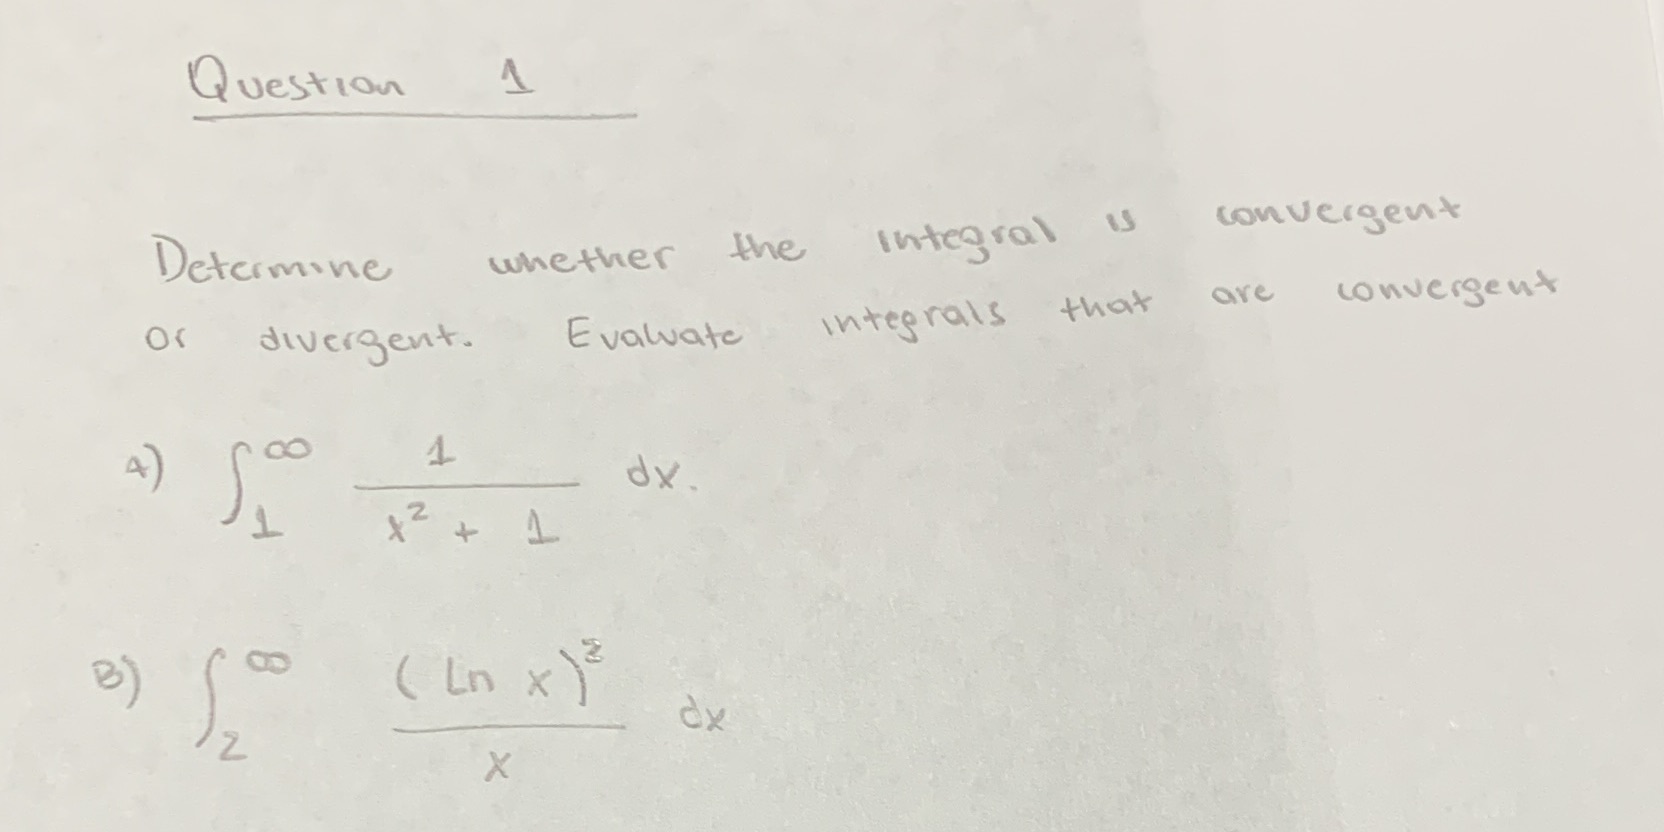 Question 1
Determine whether the integral is convergent
or divergent. Evaluate integrals that are convergent
A) ∫₁^∞ 1/(x² + 1) dx.
B) ∫₂^∞ (Ln x)²/x dx